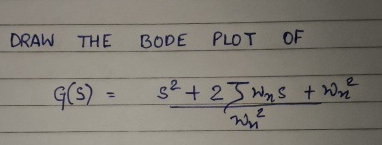 DRAW THE BODE PLOT OF
G(S) = s² + 2ζωₙs + ωₙ²
ωₙ²